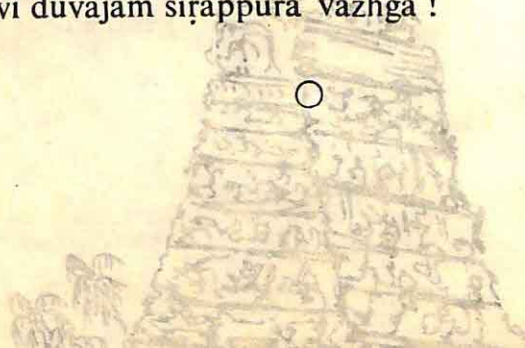 vi duvajam siṛappura vazhga !